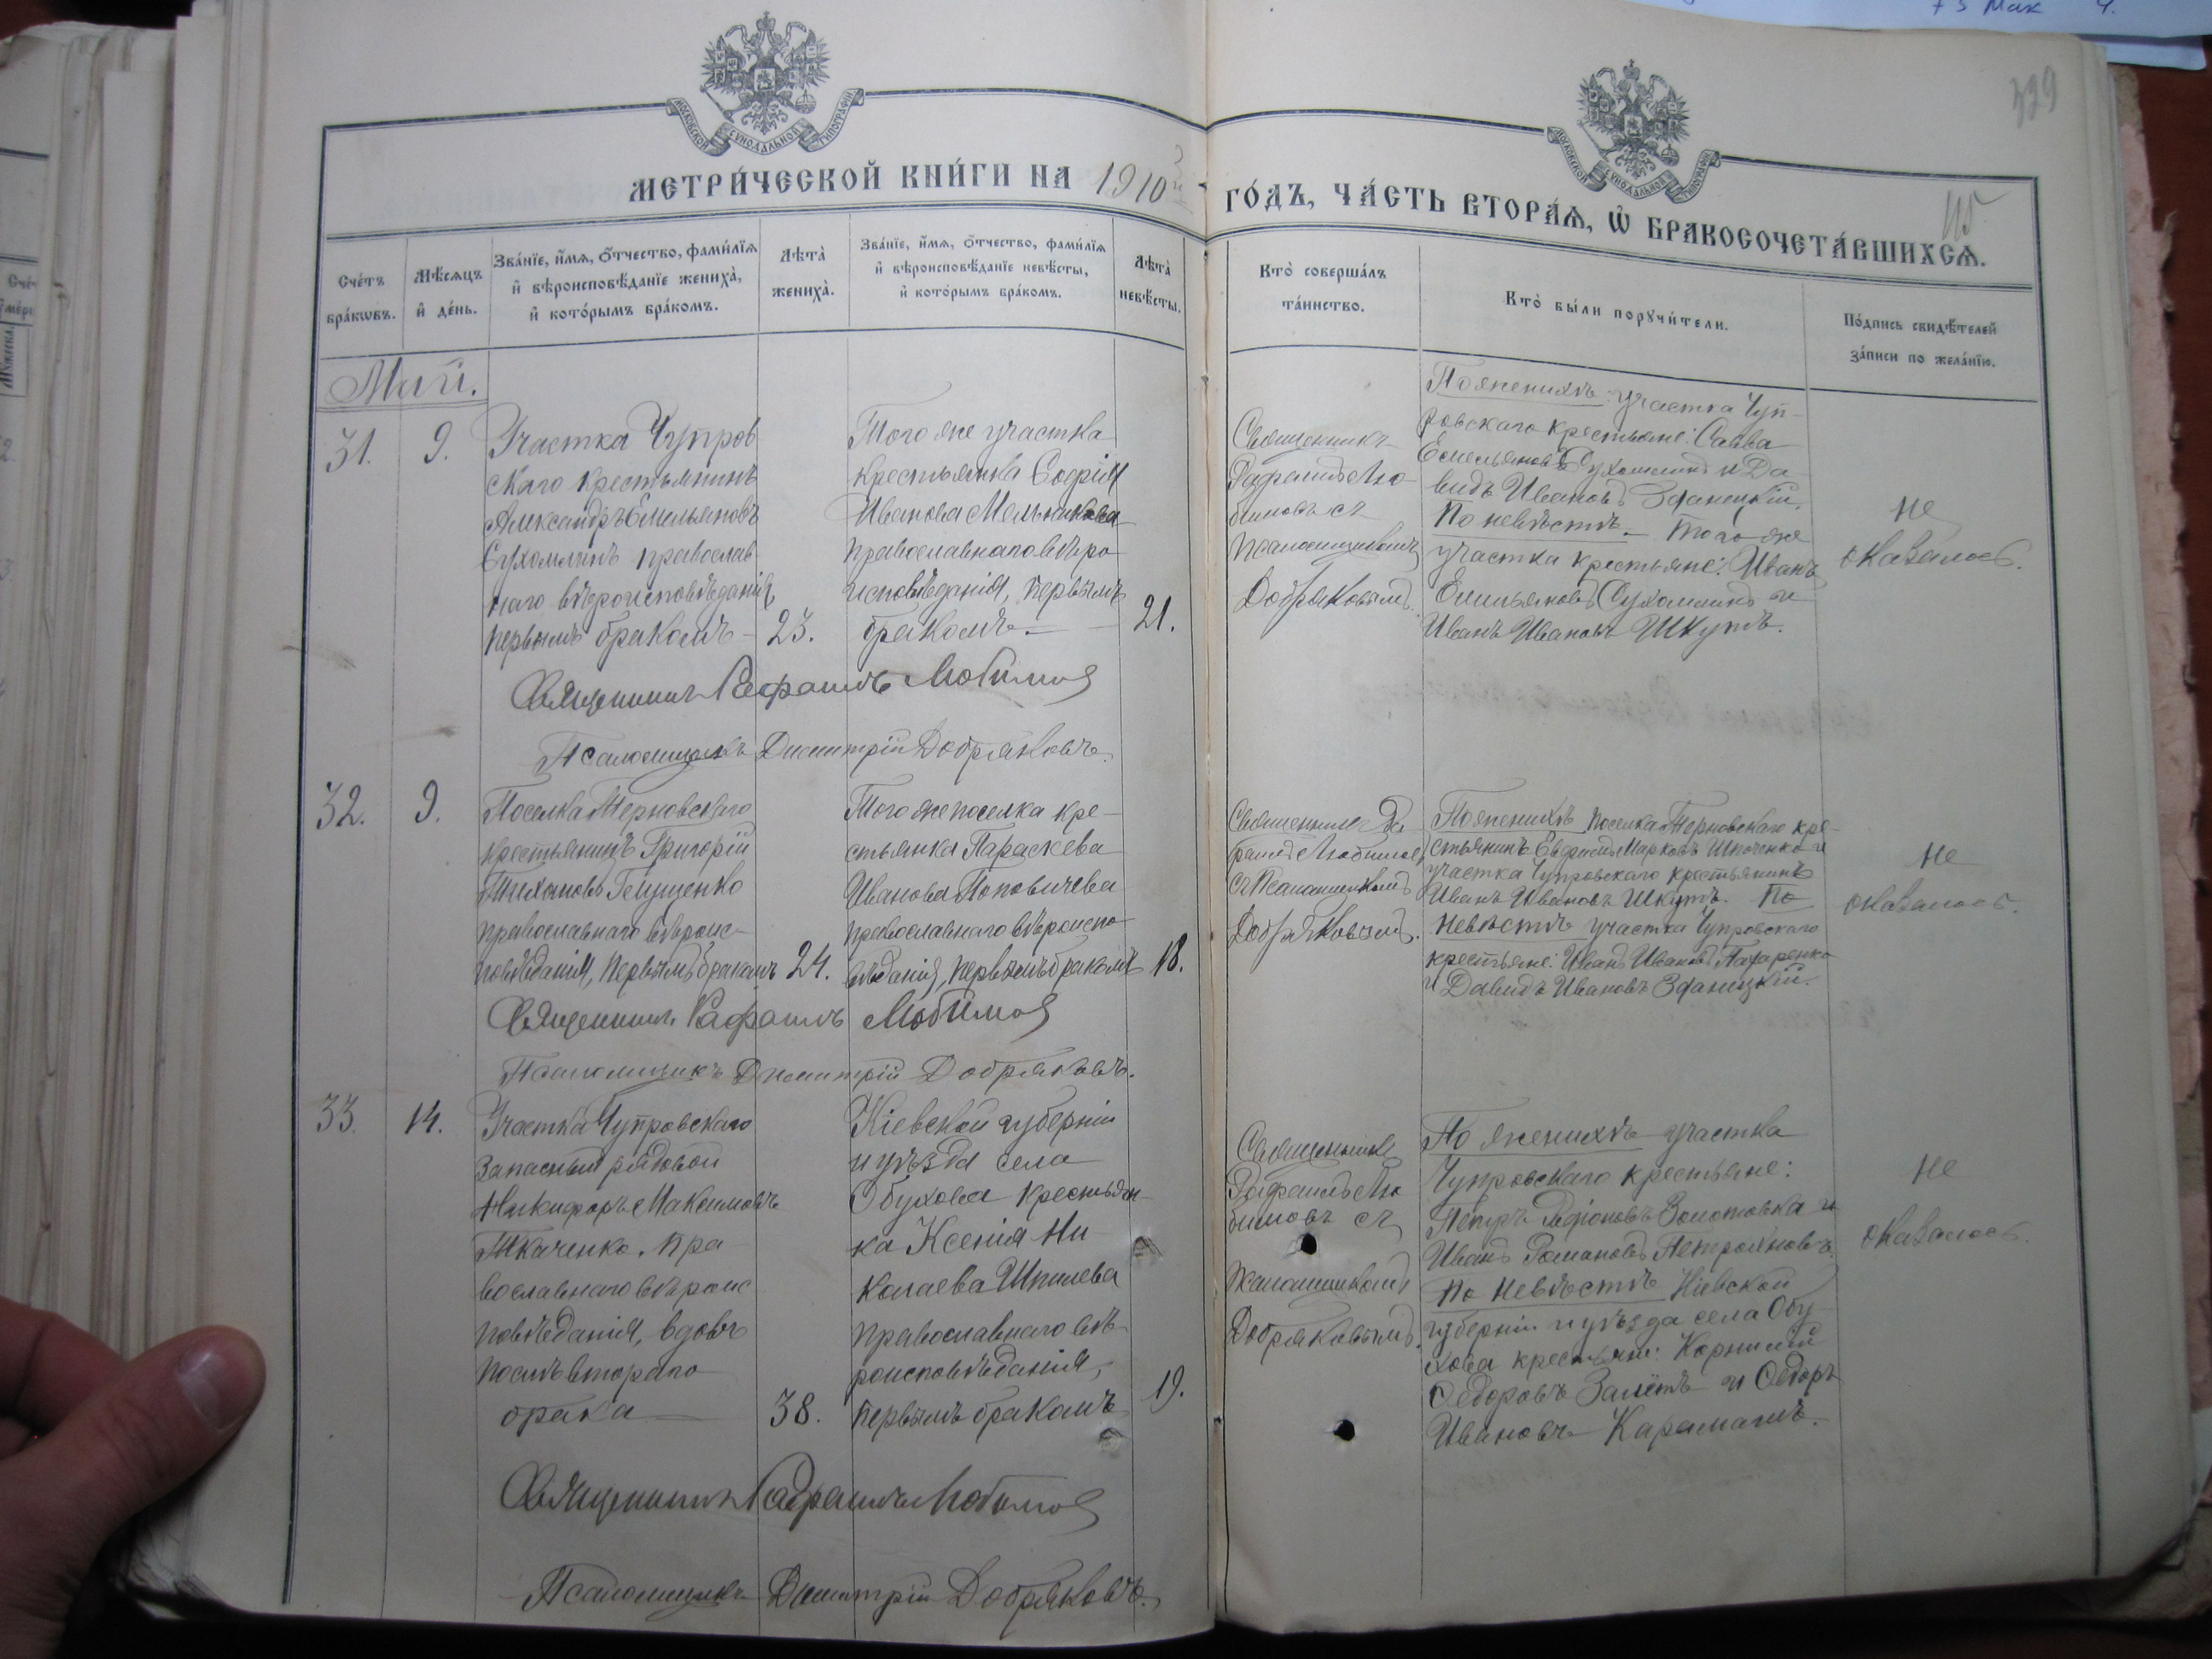 339
115
МЕТРИ́ЧЕСКОЙ КНИ́ГИ НА 1910й ГО́ДЪ, ЧА́СТЬ ВТОРА́Ѧ, Ѡ҆ БРАКОСОЧЕТА́ВШИХСѦ.
МОСКОВСКОЙ СѴНОДАЛЬНОЙ ТИПОГРАФІИ
МОСКОВСКОЙ СѴНОДАЛЬНОЙ ТИПОГРАФІИ
Сче́тъ
бра́кѡвъ.
Мѣ́сяцъ
и҆ де́нь.
Зва́нїе, и҆́мѧ, ѻ҆́тчество, фами́лїѧ
и҆ вѣроисповѣ́данїе жениха̀,
и҆ кото́рымъ бра́комъ.
Лѣта̀
жениха̀.
Зва́нїе, и҆́мѧ, ѻ҆́тчество, фами́лїѧ
и҆ вѣроисповѣ́данїе невѣ́сты,
и҆ кото́рымъ бра́комъ.
Лѣта̀
невѣ́сты.
Кто̀ соверша́лъ
та́инство.
Кто̀ бы́ли порꙋчи́тели.
По́дпись свидѣ́телей
за́писи по жела́нїю.
Май.
31.
9.
Участка Чупров
скаго крестьянинъ
Александръ Емельяновъ
Сухомлинъ православ
наго вѣроисповѣданія,
первымъ бракомъ —
23.
Того же участка
крестьянка Софія
Иванова Мельникова
православнаго вѣро
исповѣданія, первымъ
бракомъ. —
21.
Священникъ
Рафаилъ Лю-
бимовъ съ
псаломщикомъ
Добряковымъ.
По женихѣ: участка Чуп-
ровскаго крестьяне: Савва
Емельяновъ Сухомлинъ и Да-
видъ Ивановъ Зданицкій.
По невѣстѣ. — Того же
участка крестьяне: Иванъ
Емельяновъ Сухомлинъ и
Иванъ Ивановъ Шкутъ.
Не
оказалось.
Священникъ Рафаилъ Любимовъ
Псаломщикъ Димитрій Добряковъ.
32.
9.
Поселка Терновскаго
крестьянинъ Григорій
Тихоновъ
православнаго вѣроис-
повѣданія, первымъ бракомъ
24.
Того же поселка кре-
стьянка Параскева
Иванова Поповичева
православнаго вѣроиспо-
вѣданія, первымъ бракомъ
18.
Священникъ Ра
фаилъ Любимовъ
съ Псаломщикомъ
Добряковымъ.
По женихѣ поселка Терновскаго кре-
стьянинъ Марковъ и
участка Чупровскаго крестьянинъ
Иванъ Ивановъ Шкутъ. По
невѣстѣ участка Чупровскаго
крестьяне: Иванъ Ивановъ
и Давидъ Ивановъ Зданицкій.
Не
оказалось.
Священникъ Рафаилъ Любимовъ
Псаломщикъ Димитрій Добряковъ.
33.
14.
Участка Чупровскаго
запасный рядовой
Никифоръ Максимовъ
Ткаченко. Пра-
вославнаго вѣроис
повѣданія, вдовъ
послѣ втораго
брака —
38.
Кіевской губерніи
и уѣзда села
Обухова крестьян-
ка Ксенія Ни-
колаева Шпилева
православнаго вѣ-
роисповѣданія,
первымъ бракомъ
19.
Священникъ
Рафаилъ Лю
бимовъ съ
Псаломщикомъ
Добряковымъ.
По женихѣ участка
Чупровскаго крестьяне:
Петръ Золотовка и
Иванъ Романовъ
По невѣстѣ Кіевской
губерніи и уѣзда села Обу
хова крестьяне: Корнилій
Ѳедоровъ и Ѳедоръ
Ивановъ
Не
оказалось.
Священникъ Рафаилъ Любимовъ
Псаломщикъ Димитрій Добряковъ.